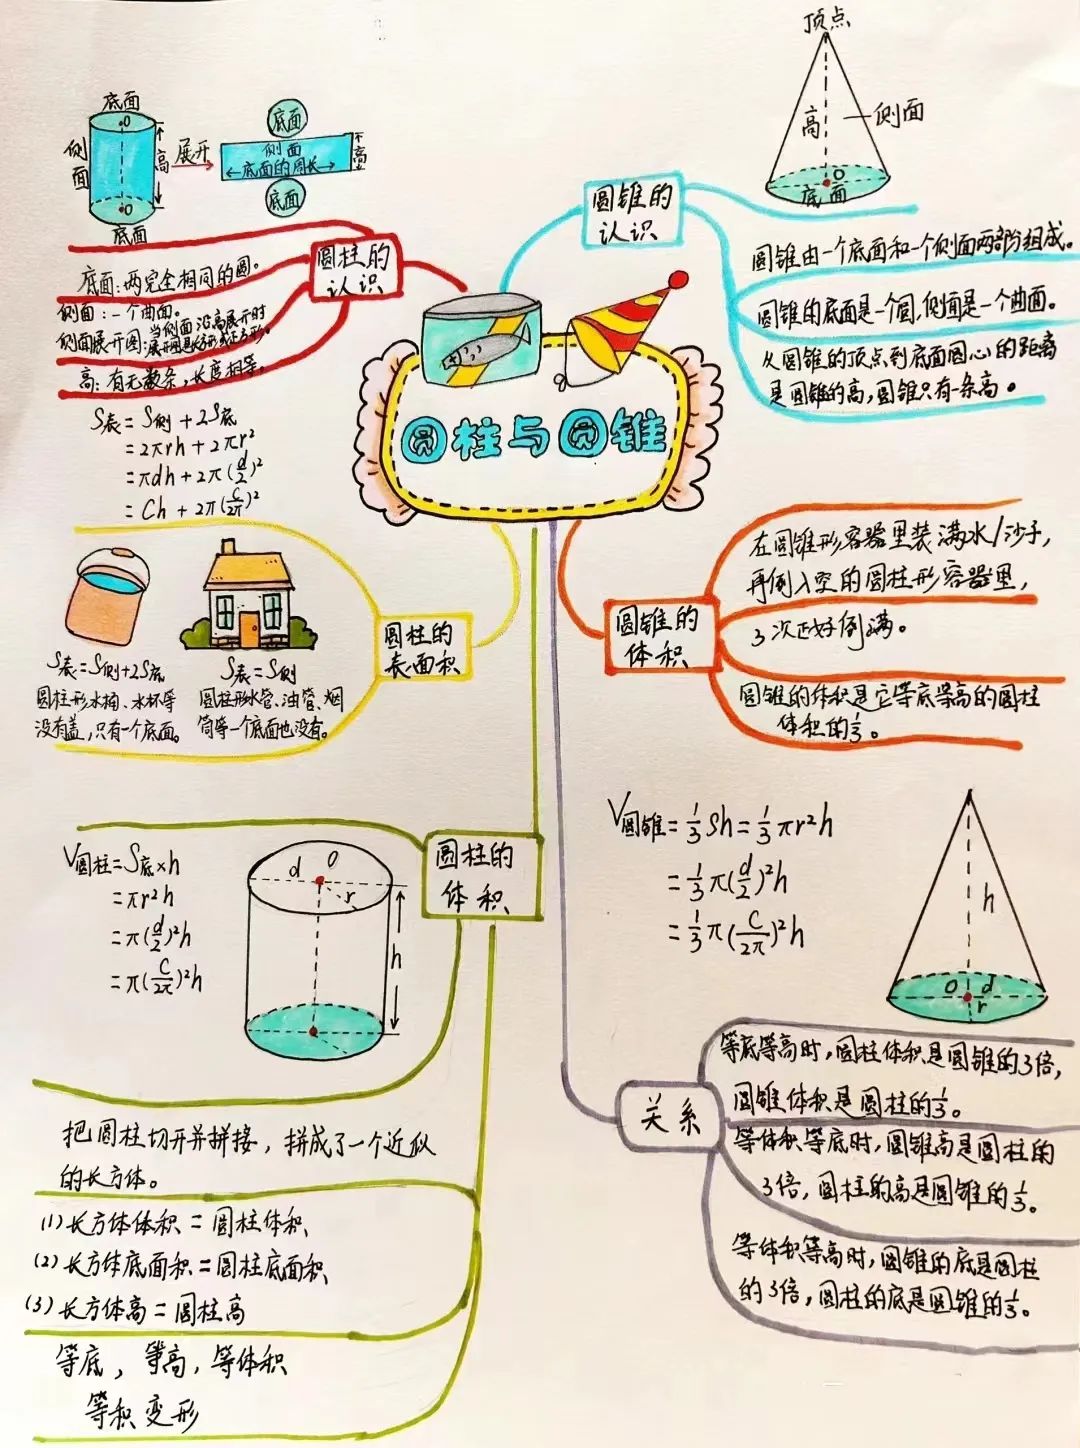 圆柱与圆锥
圆柱的
认识
底面
O
侧面
高
O
底面
展开
底面
侧面
底面的周长
高
底面
底面:两完全相同的圆。
侧面:一个曲面。
侧面展开图:当侧面沿高展开时
展开图是长方形或正方形
高:有无数条,长度相等。
S表=S侧+2S底
=2πrh+2πr²
=πdh+2π(d/2)²
=Ch+2π(C/2π)²
圆柱的
表面积
S表=S侧+2S底
圆柱形水桶、水杯等
没有盖,只有一个底面。
S表=S侧
圆柱形水管、油管、烟
筒等一个底面也没有。
圆柱的
体积
V圆柱=S底×h
=πr²h
=π(d/2)²h
=π(C/2π)²h
d
O
r
h
把圆柱切开并拼接,拼成了一个近似
的长方体。
(1)长方体体积=圆柱体积
(2)长方体底面积=圆柱底面积
(3)长方体高=圆柱高
等底,等高,等体积
等积变形
圆锥的
认识
顶点
高
侧面
O
底面
圆锥由一个底面和一个侧面两部分组成。
圆锥的底面是一个圆,侧面是一个曲面。
从圆锥的顶点到底面圆心的距离
是圆锥的高,圆锥只有一条高。
圆锥的
体积
在圆锥形容器里装满水/沙子,
再倒入空的圆柱形容器里,
3次正好倒满。
圆锥的体积是它等底等高的圆柱
体积的1/3。
V圆锥=1/3Sh=1/3πr²h
=1/3π(d/2)²h
=1/3π(C/2π)²h
h
O
d
r
关系
等底等高时,圆柱体积是圆锥的3倍,
圆锥体积是圆柱的1/3。
等体积等底时,圆锥高是圆柱的
3倍,圆柱的高是圆锥的1/3。
等体积等高时,圆锥的底是圆柱
的3倍,圆柱的底是圆锥的1/3。